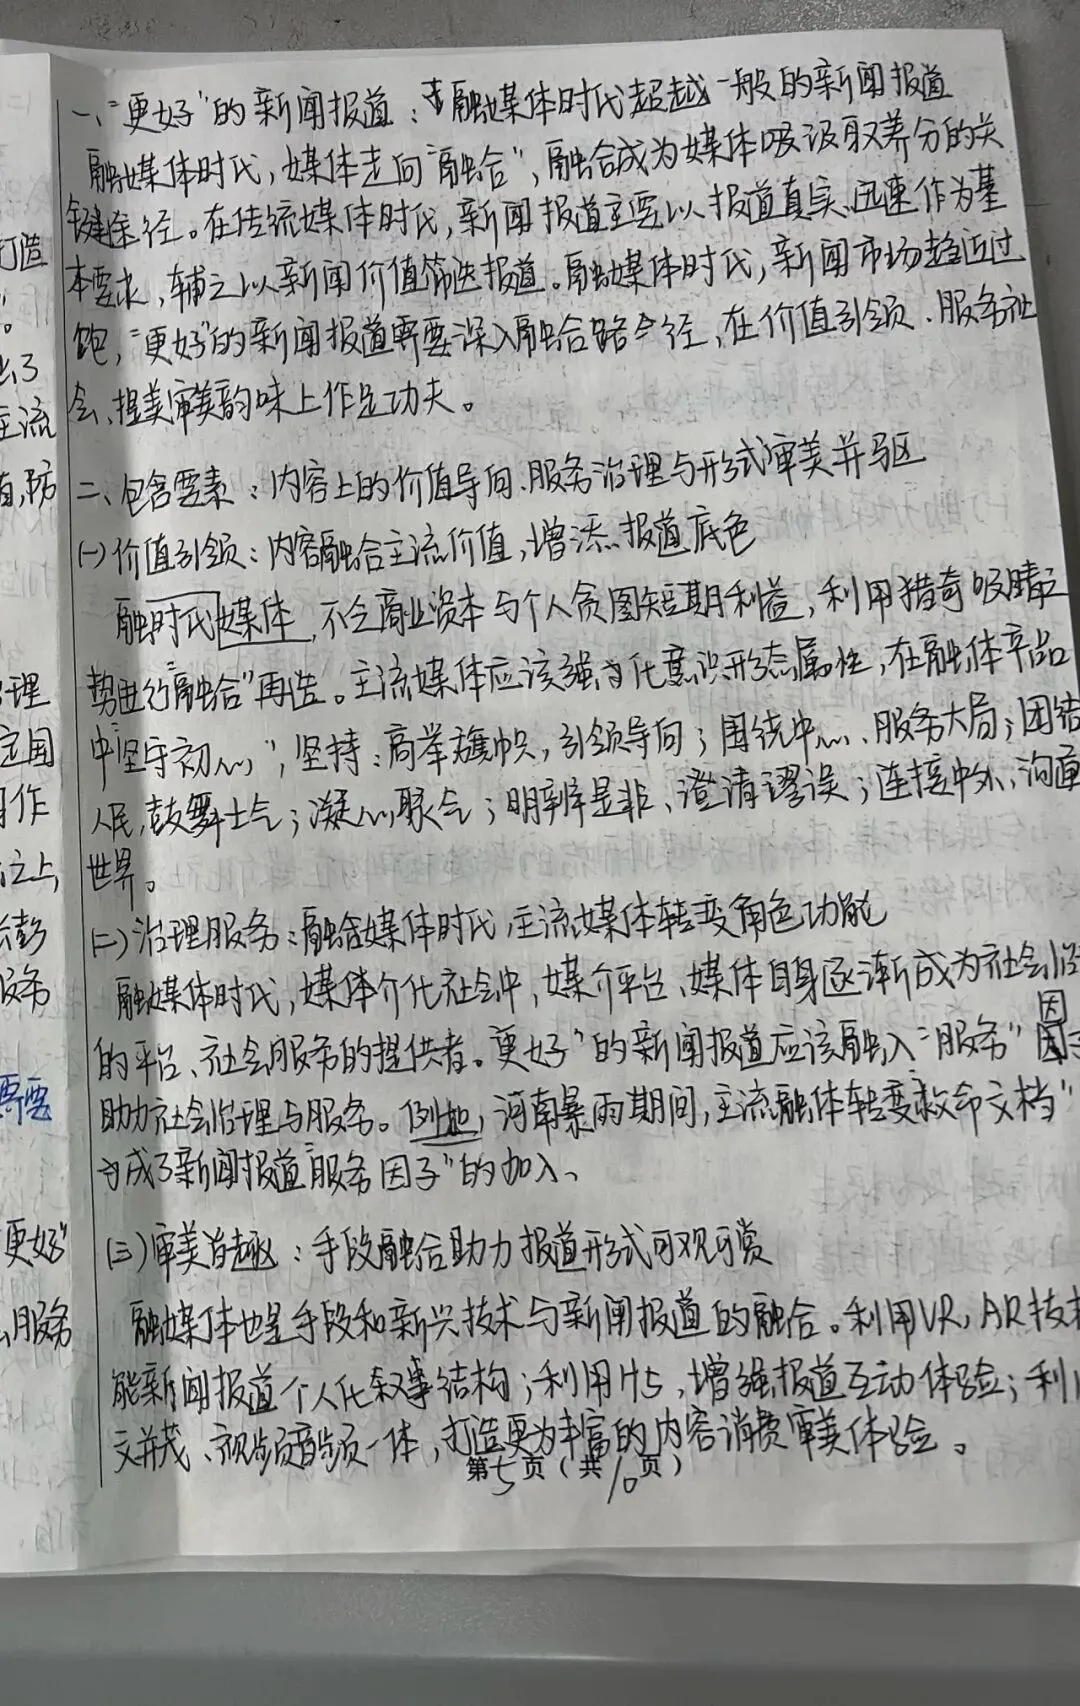 一、"更好"的新闻报道：融媒体时代超越一般的新闻报道
融媒体时代，媒体走向"融合"，融合成为媒体吸汲取养分的关
键途径。在传统媒体时代，新闻报道主要以报道真实、迅速作为基
本要求，辅之以新闻价值筛选报道。融媒体时代，新闻市场趋近过
饱，"更好"的新闻报道需要深入融合路径，在价值引领、服务社
会、提美审美韵味上作足功夫。
二、包含要素：内容上的价值导向、服务治理与形式审美并驱
(一)价值引领：内容融合主流价值，增添报道底色
融时代媒体，不乏商业资本与个人贪图短期利益，利用猎奇吸睛之
势进行"融合"再造。主流媒体应该强化意识形态属性，在融体产品
中"坚守初心"，坚持：高举旗帜，引领导向；围绕中心、服务大局；团结
人民，鼓舞士气；凝心聚气；明辨是非、澄清谬误；连接中外，沟通
世界。
(二)治理服务：融合媒体时代，主流媒体转变角色功能
融媒体时代，媒体介化社会中，媒介平台、媒体自身逐渐成为社会治
的平台、社会服务的提供者。更好"的新闻报道应该融入"服务"因
助力社会治理与服务。例如，河南暴雨期间，主流融体转变救命文档"
成了新闻报道"服务因子"的加入、
(三)审美旨趣：手段融合助力报道形式可观可赏
融媒体也是手段和新兴技术与新闻报道的融合。利用VR，AR技术
能新闻报道个人化叙事结构；利用H5，增强报道互动体验；利
文并茂、视频音频一体，打造更为丰富的内容消费审美体验。
第5页（共10页）
打造
了
主流
，防
理
国
作
之上，
服务
需要
更好"
服务